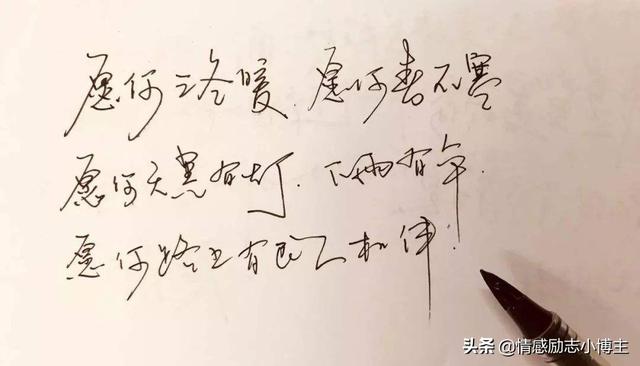 愿你三冬暖.愿你春不寒
愿你天黑有灯.下雨有伞.
愿你路上有良人相伴!
头条 @情感励志小博主